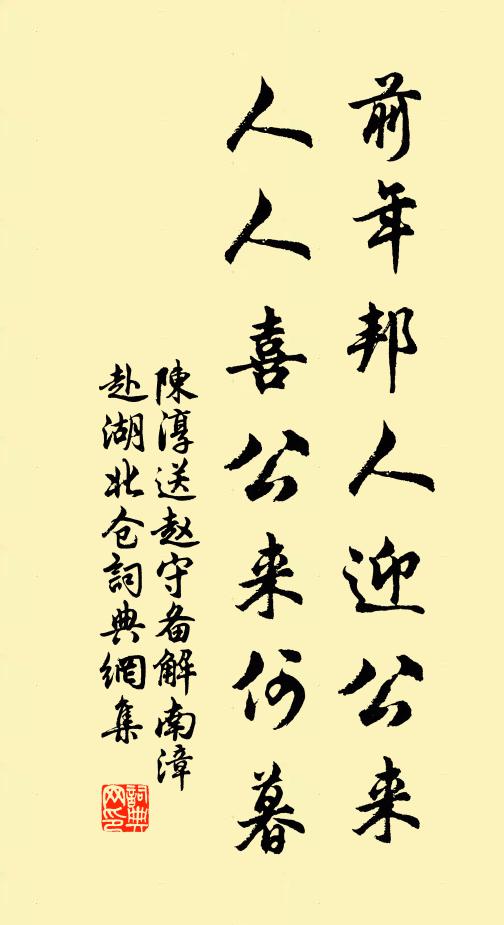 前年邦人迎公来
人人喜公来何暮
陳淳送赵守备解南漳
赴湖北仓詞典網集
詞典网印